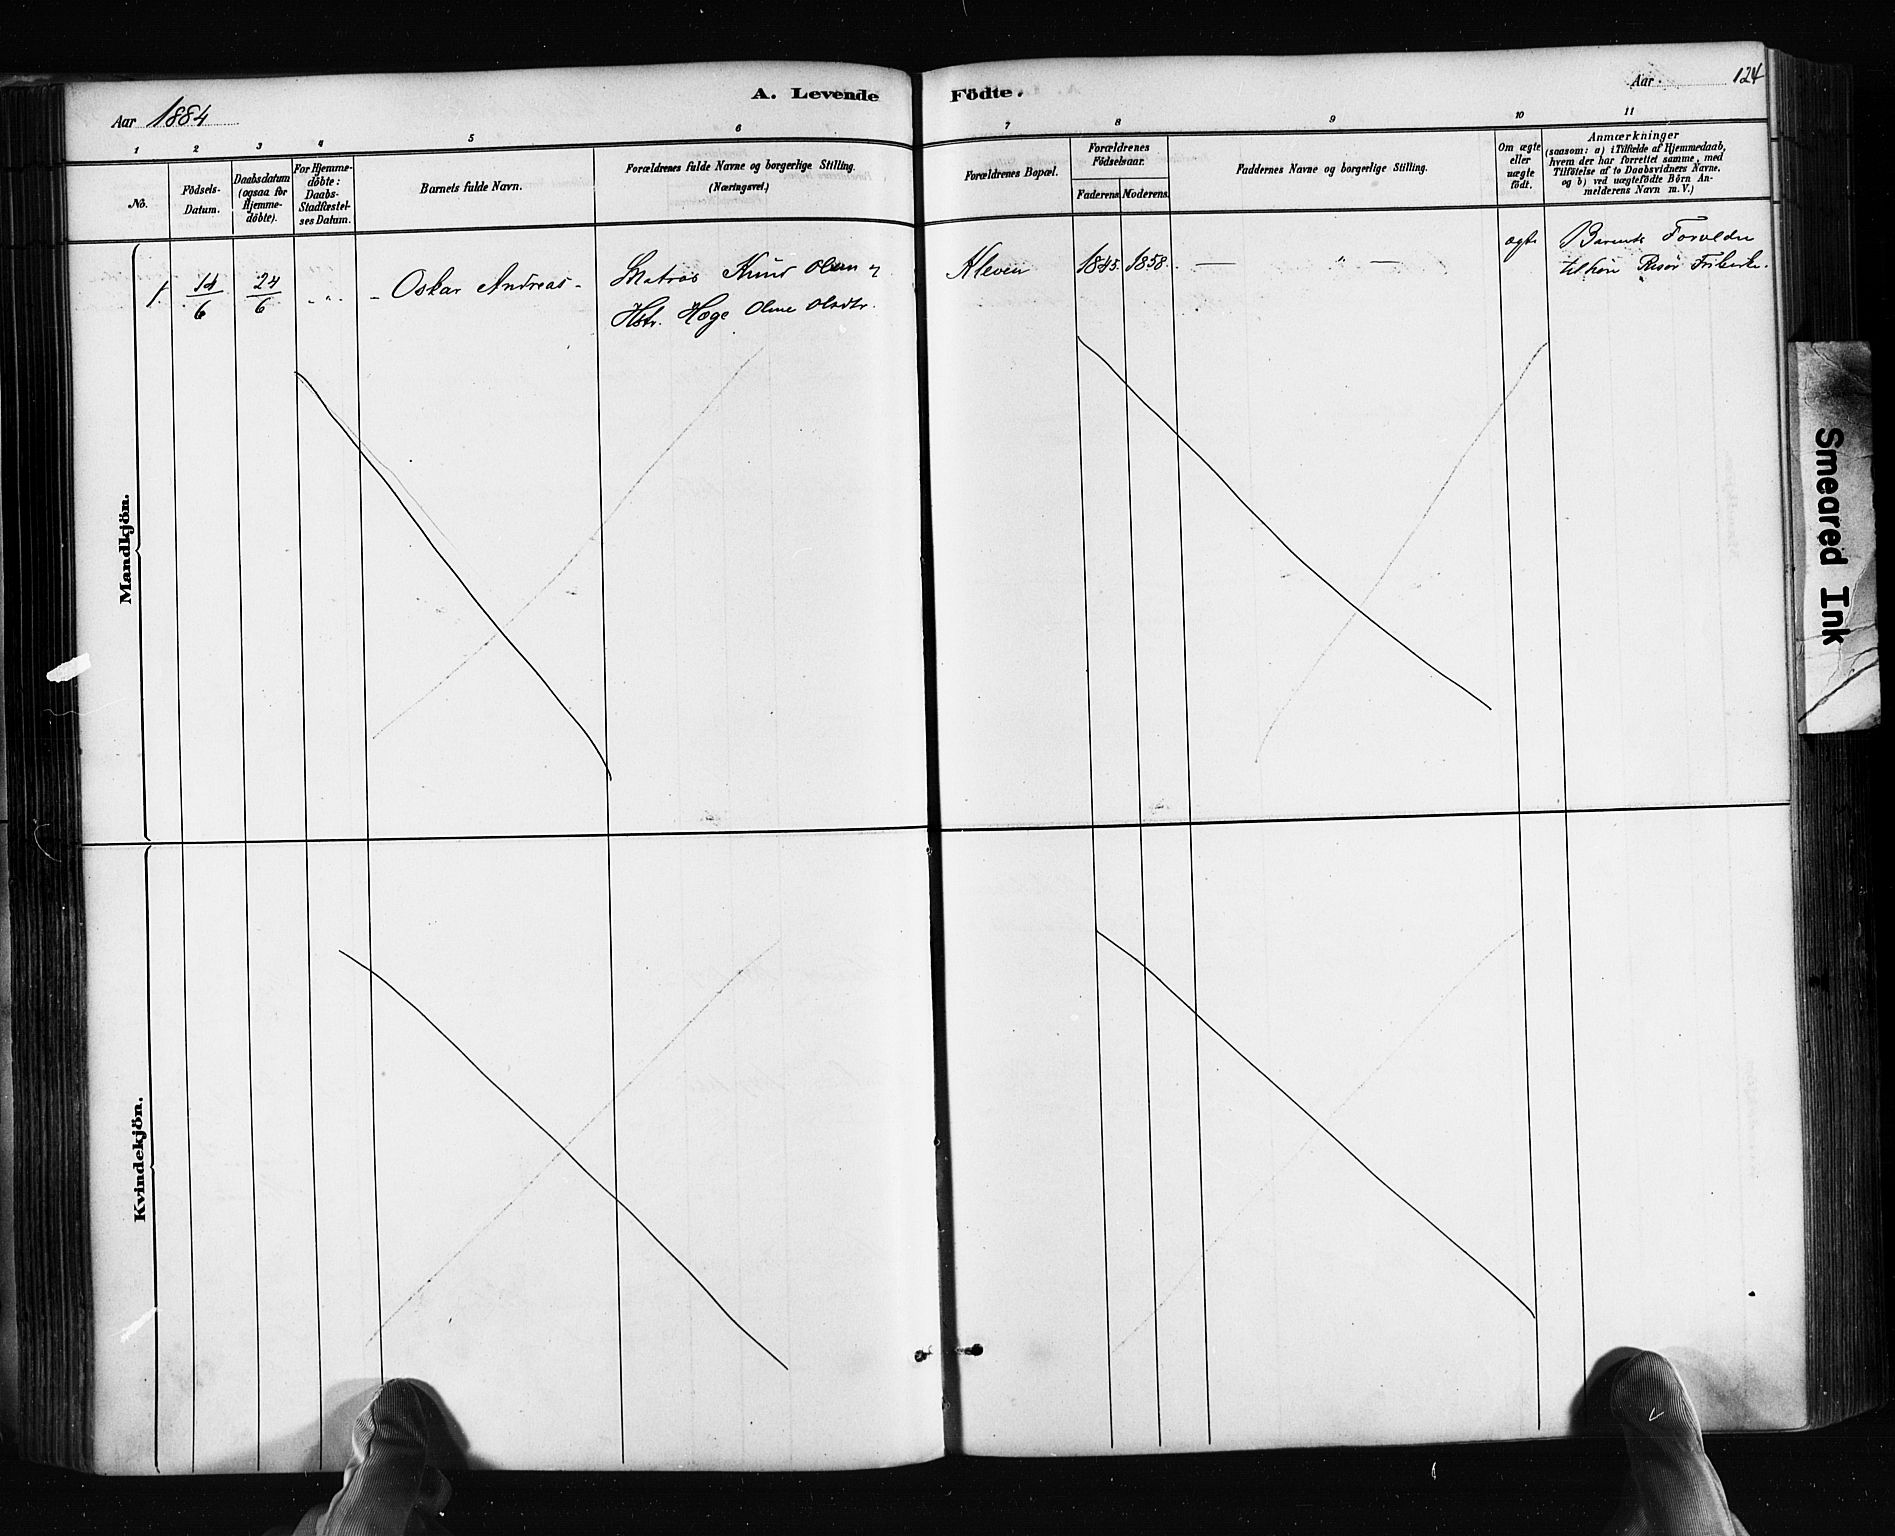 A. Levende Födte.
Aar 1884
Aar 124
1 2 3 4 5 6 7 8 9 10 11
No.
Födsels-
Datum.
Daabsdatum
(ogsaa for
Hjemme-
döbte).
For Hjemme-
döbte:
Daabs-
Stadfæstel-
ses Datum.
Barnets fulde Navn.
Forældrenes fulde Navne og borgerlige Stilling.
(Næringsvei.)
Forældrenes Bopæl.
Forældrenes
Födselsaar.
Faderens. Moderens.
Faddernes Navne og borgerlige Stilling.
Om ægte
eller
uægte
födt.
Anmærkninger
(saasom: a) i Tilfælde af Hjemmedaab,
hvem der har forrettet samme, med
Tilföielse af to Daabsvidners Navne,
og b) ved uægtefödte Börn An-
melderens Navn m. V.)
Mandkjön.
1. 14/6 24/6 - „ - - Oskar Andreas -
Matros Knud Olsen &
Hstr. Hæge Oline Olsdtr.
Kleven 1845. 1858. — „ — ægte
Barnets Forældre
tilhöre Risör Frikirke.
Kvindekjön.
Smeared Ink